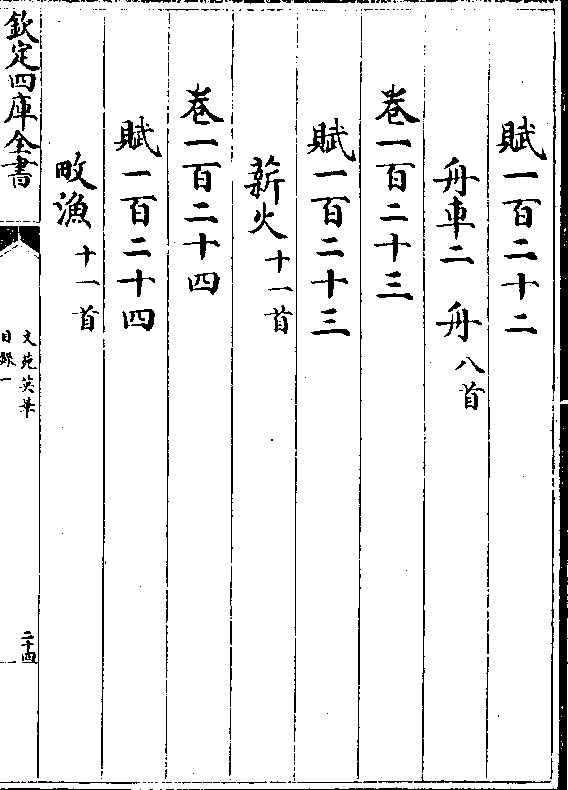 賦一百二十二
舟車二 舟八首
卷一百二十三
賦一百二十三
薪火十一首
卷一百二十四
賦一百二十四
畋漁十一首
欽定四庫全書
文苑英華
目録一
二十四